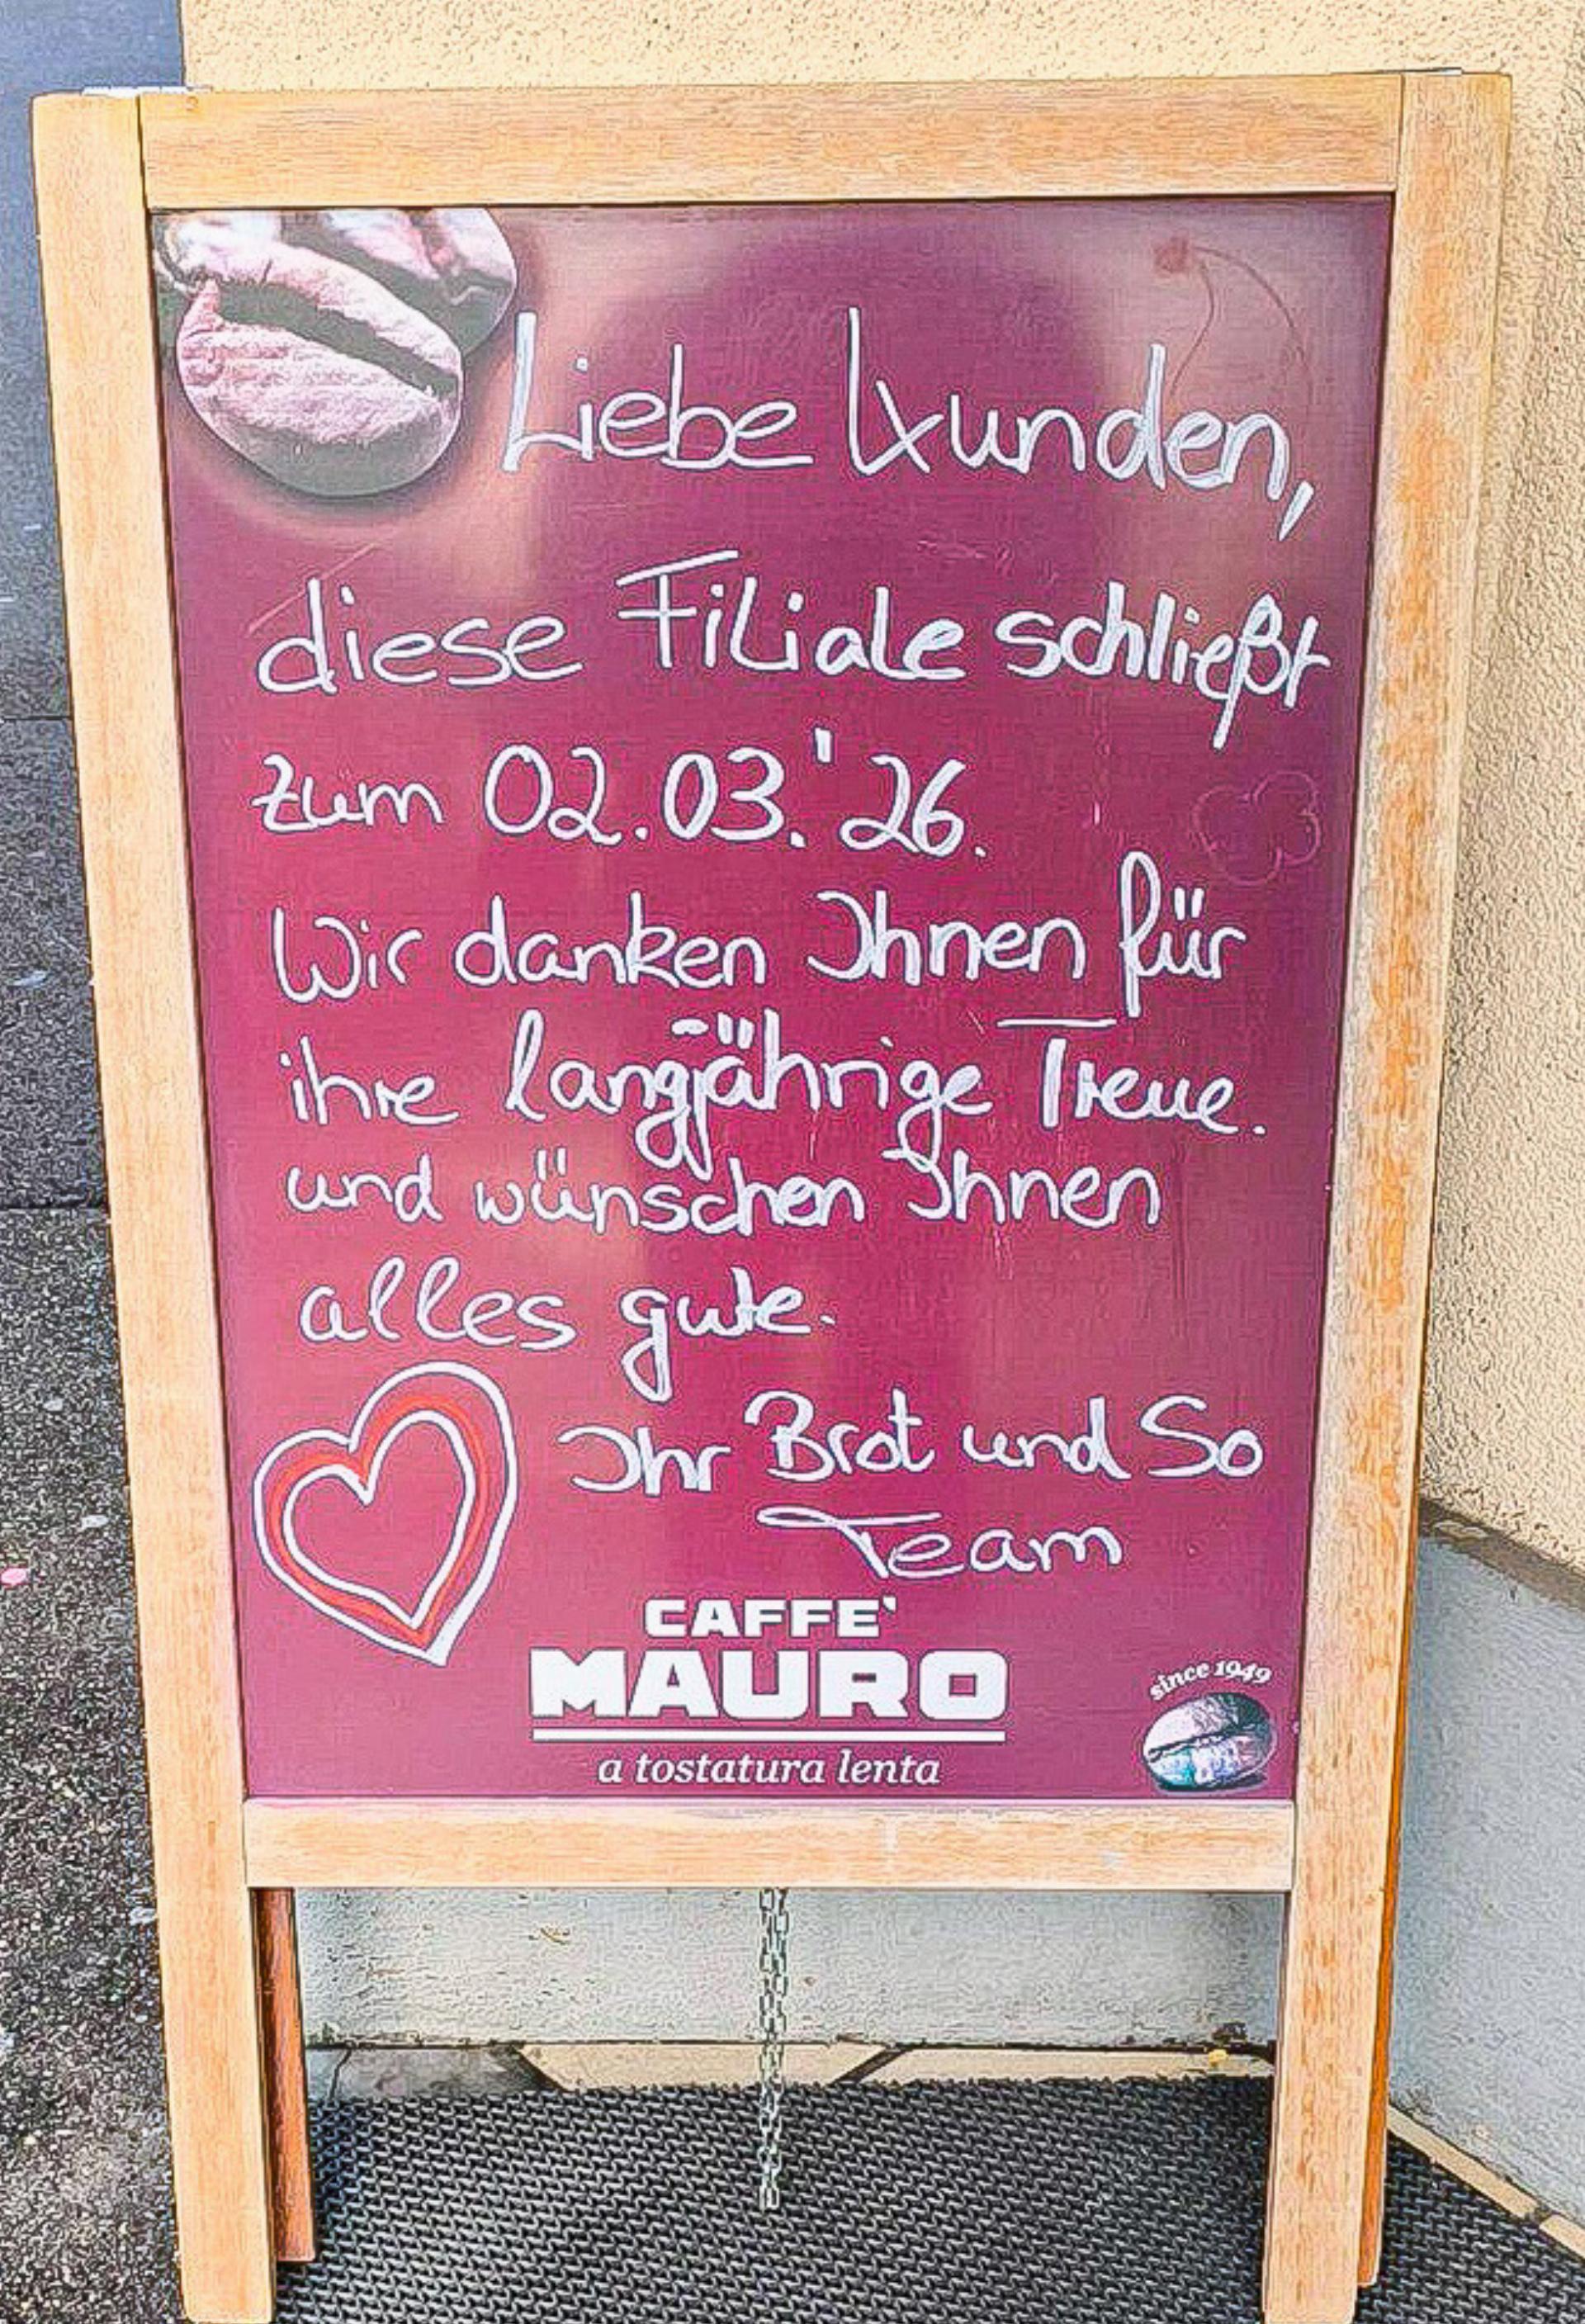 Liebe Kunden,
diese Filiale schließt
zum 02.03.'26.
Wir danken Ihnen für
ihre langjährige Treue.
und wünschen Ihnen
alles gute.
Ihr Brot und So
Team
CAFFE'
MAURO
a tostatura lenta
since 1949